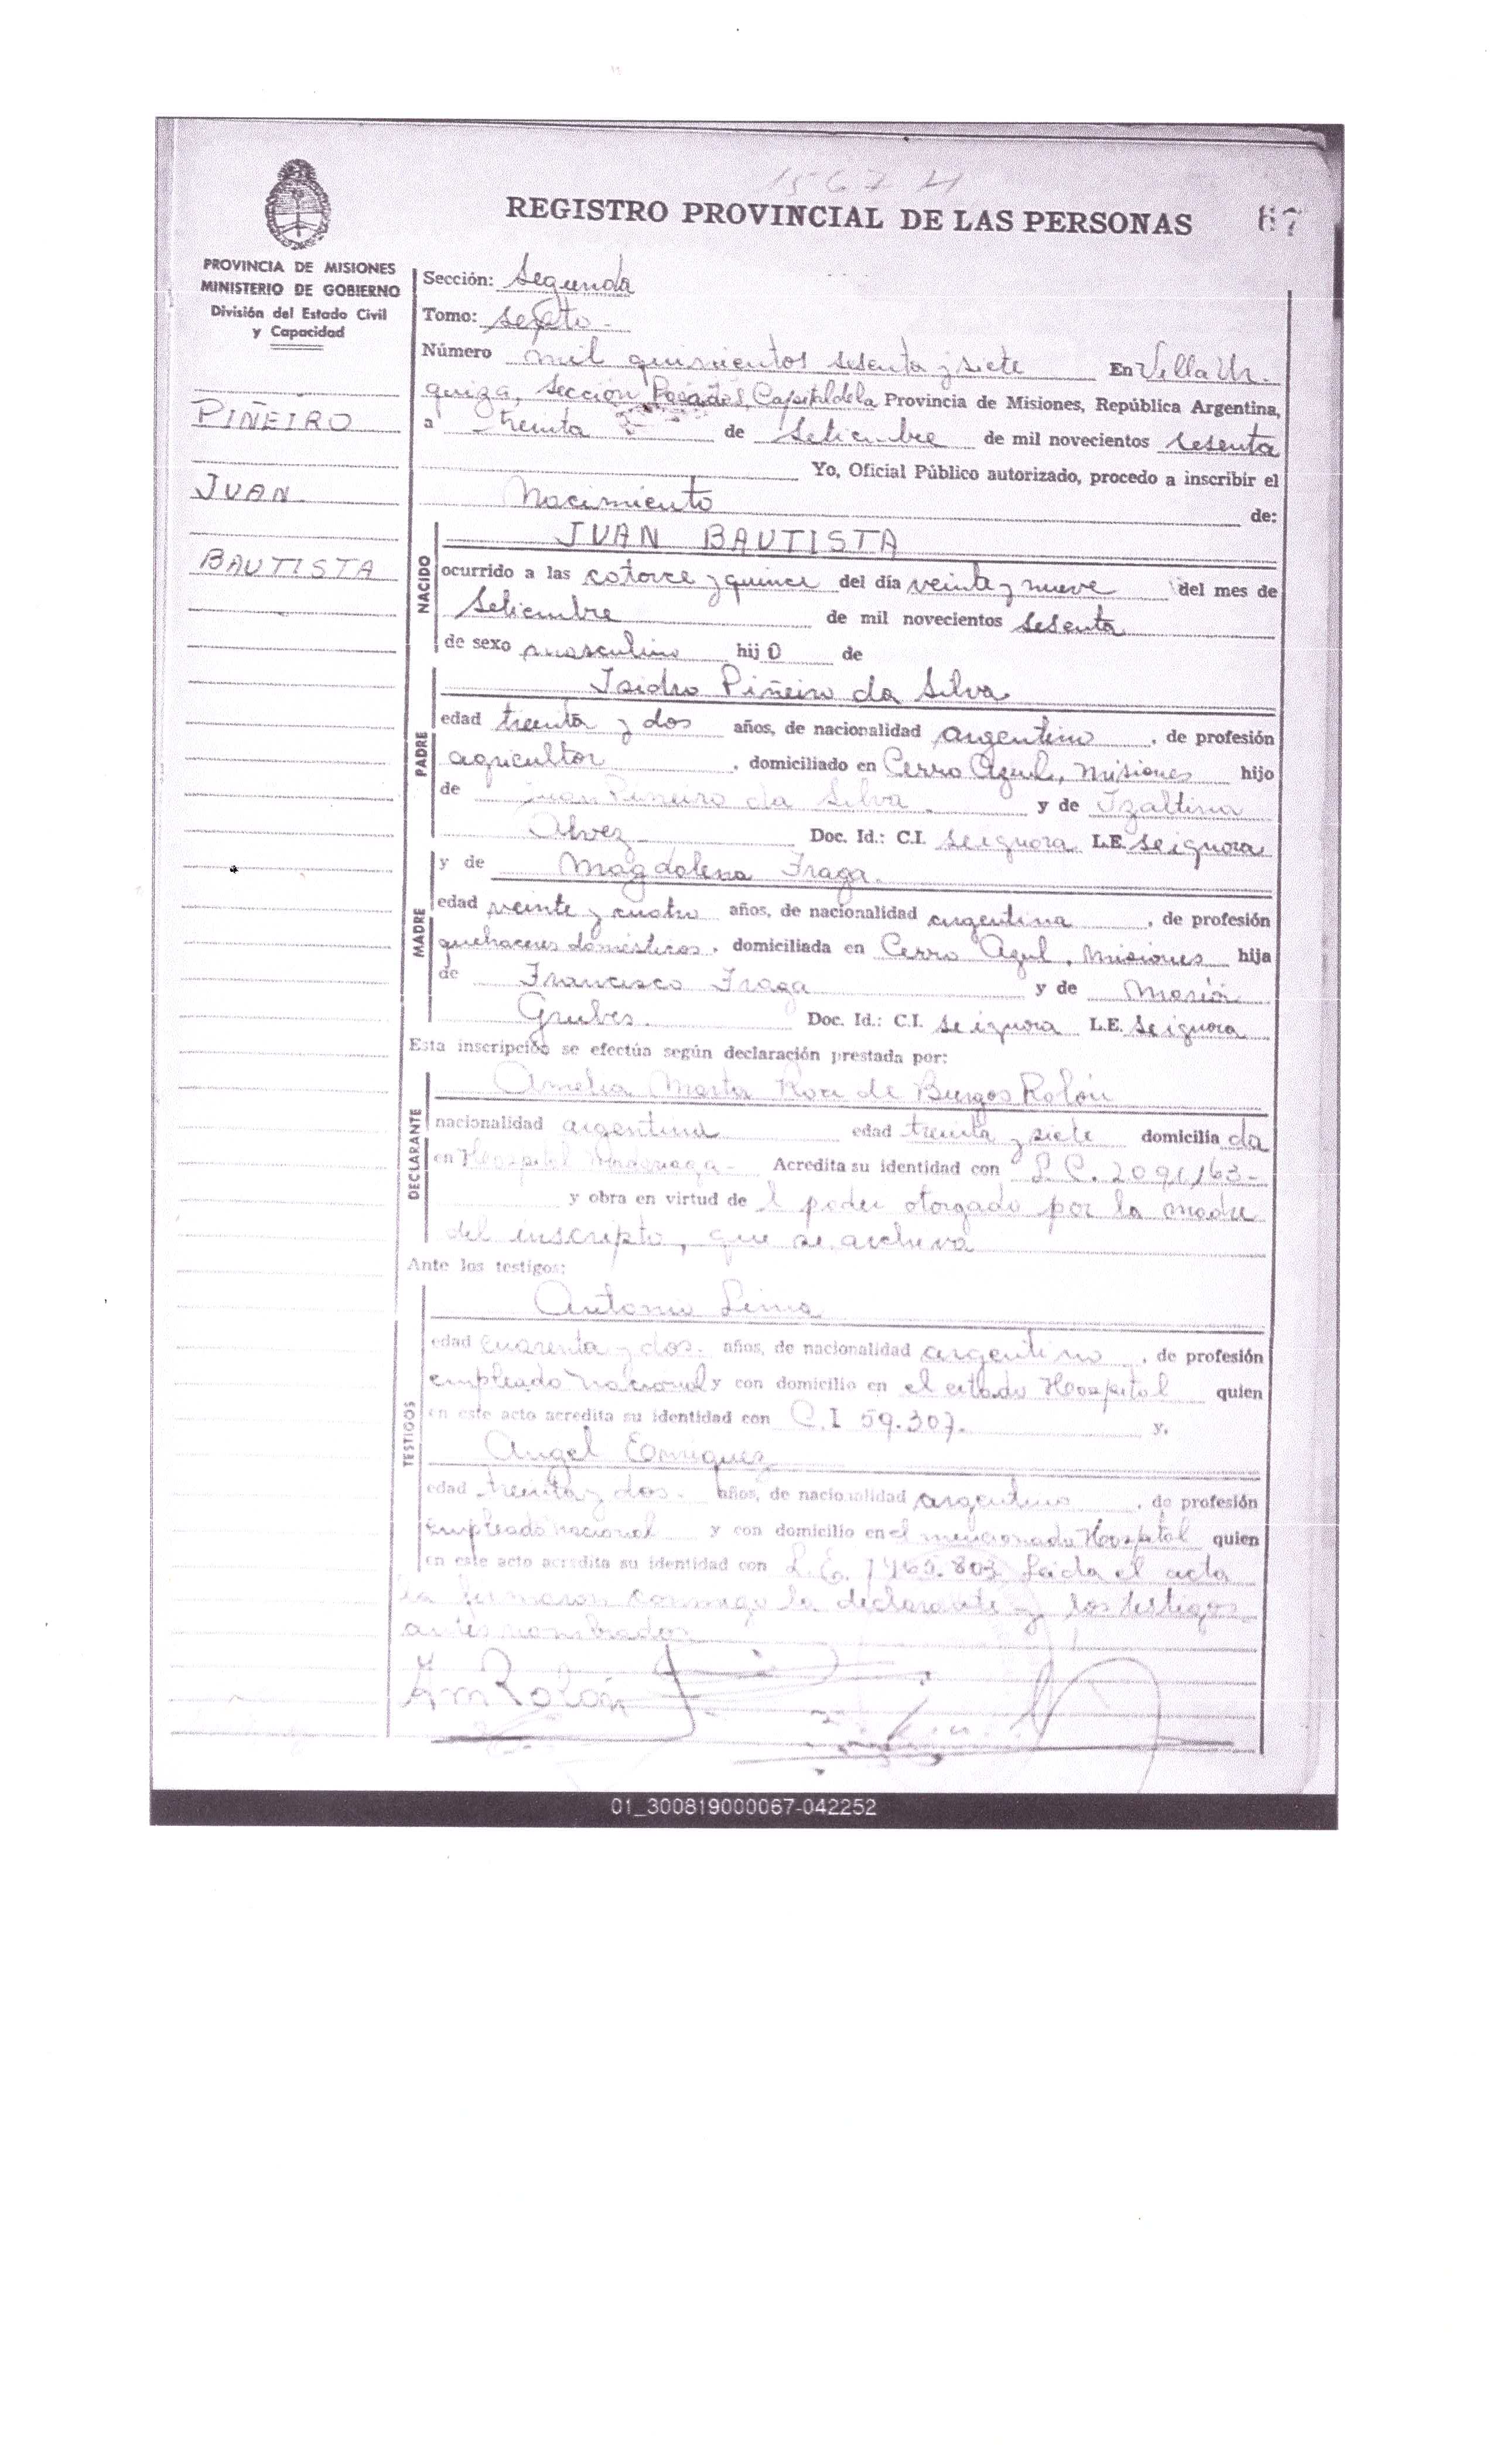 1567 H
REGISTRO PROVINCIAL DE LAS PERSONAS
67
PROVINCIA DE MISIONES
MINISTERIO DE GOBIERNO
División del Estado Civil
y Capacidad
PIÑEIRO
JUAN
BAUTISTA
Sección: Segunda
Tomo: sexto
Número mil quinientos sesenta y siete En Villa Ur-
quiza, Sección Posadas, Capital de la Provincia de Misiones, República Argentina,
a treinta de Setiembre de mil novecientos sesenta
Yo, Oficial Público autorizado, procedo a inscribir el
Nacimiento de:
NACIDO
JUAN BAUTISTA
ocurrido a las catorce y quince del día veinte y nueve del mes de
Setiembre de mil novecientos sesenta
de sexo masculino hijo de
PADRE
Isidro Piñeiro da Silva
edad treinta y dos años, de nacionalidad argentino, de profesión
agricultor, domiciliado en Cerro Azul, Misiones hijo
de Juan Piñeiro da Silva y de Izaltina
Alvez Doc. Id.: C.I. se ignora L.E. se ignora
MADRE
y de Magdalena Fraga.
edad veinte y cuatro años, de nacionalidad argentina, de profesión
quehaceres domésticos, domiciliada en Cerro Azul, Misiones hija
de Francisco Fraga y de María
Grubes. Doc. Id.: C.I. se ignora L.E. se ignora
Esta inscripción se efectúa según declaración prestada por:
DECLARANTE
Amelia Marta Roa de Burgos Rolón
nacionalidad argentina edad treinta y siete domicilia da
en Hospital Madariaga - Acredita su identidad con L.C. 2091163-
y obra en virtud de l poder otorgado por la madre
del inscripto, que se archiva
Ante los testigos:
TESTIGOS
Antonio Lima
edad cuarenta y dos. años, de nacionalidad argentino, de profesión
empleado nacional y con domicilio en el citado Hospital quien
en este acto acredita su identidad con C.I 59.307. y,
Angel Enriquez
edad treinta y dos. años, de nacionalidad argentino, de profesión
empleado nacional y con domicilio en el mencionado Hospital quien
en este acto acredita su identidad con L.E. Leída el acta
la firmaron conmigo la declarante y los testigos
antes nombrados
AmRolón
01_300819000067-042252